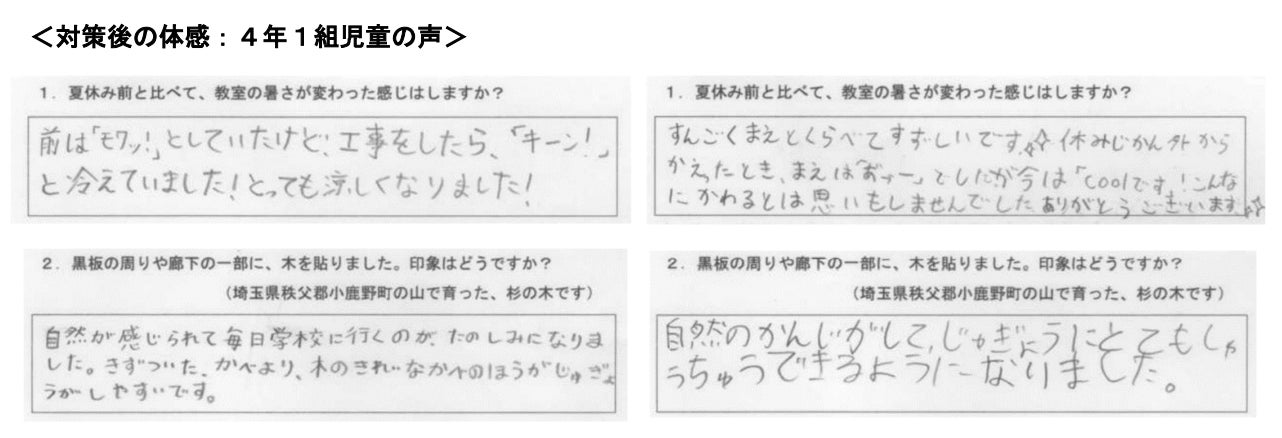 ＜対策後の体感：４年１組児童の声＞
1．夏休み前と比べて、教室の暑さが変わった感じはしますか？
前は「モワッ!」としていたけど、工事をしたら、「キーン!」
と冷えていました!とっても涼しくなりました!
1．夏休み前と比べて、教室の暑さが変わった感じはしますか？
すんごくまえとくらべてすずしいです。☆休みじかん外から
かえったとき、まえは「あヶー」でしたが今は「coolです!こんな
にかわるとは思いもしませんでした ありがとうございます。☆
2．黒板の周りや廊下の一部に、木を貼りました。印象はどうですか？
（埼玉県秩父郡小鹿野町の山で育った、杉の木です）
自然が感じられて毎日学校に行くのが、たのしみになりま
した。きずついた、かべより、木のきれいなかべのほうがじゅぎょ
うがしやすいです。
2．黒板の周りや廊下の一部に、木を貼りました。印象はどうですか？
（埼玉県秩父郡小鹿野町の山で育った、杉の木です）
自然のかんじがして、じゅぎょうにとてもしゅ
うちゅうできるようになりました。